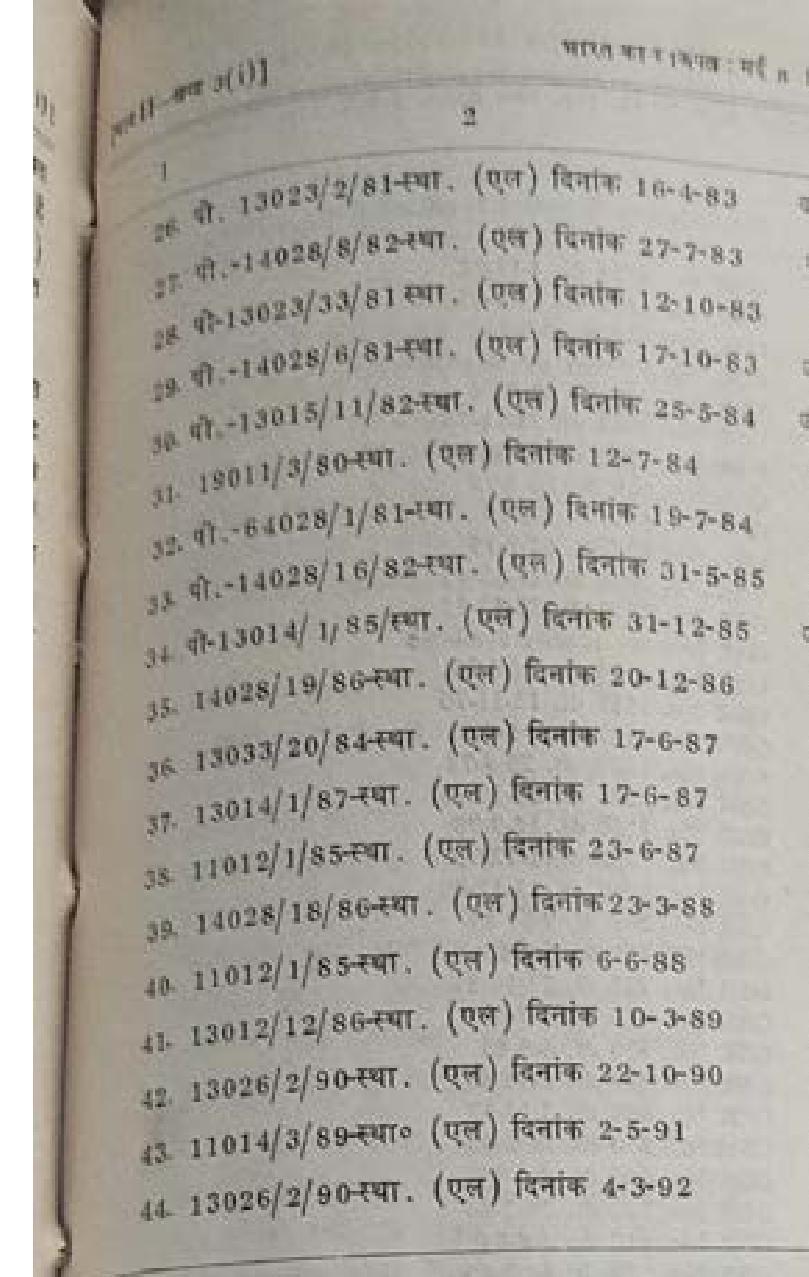 [भाग II—खण्ड 3(i)]
भारत का राजपत्र : मई
1 2
26. पी. 13023/2/81-स्था. (एल) दिनांक 16-4-83
27. पी.-14028/8/82-स्था. (एल) दिनांक 27-7-83
28. पी-13023/33/81 स्था. (एल) दिनांक 12-10-83
29. पी.-14028/6/81-स्था. (एल) दिनांक 17-10-83
30. पी.-13015/11/82-स्था. (एल) दिनांक 25-5-84
31. 19011/3/80-स्था. (एल) दिनांक 12-7-84
32. पी.-64028/1/81-स्था. (एल) दिनांक 19-7-84
33. पी.-14028/16/82-स्था. (एल) दिनांक 31-5-85
34. पी-13014/1/85/स्था. (एल) दिनांक 31-12-85
35. 14028/19/86-स्था. (एल) दिनांक 20-12-86
36. 13033/20/84-स्था. (एल) दिनांक 17-6-87
37. 13014/1/87-स्था. (एल) दिनांक 17-6-87
38. 11012/1/85-स्था. (एल) दिनांक 23-6-87
39. 14028/18/86-स्था. (एल) दिनांक 23-3-88
40. 11012/1/85-स्था. (एल) दिनांक 6-6-88
41. 13012/12/86-स्था. (एल) दिनांक 10-3-89
42. 13026/2/90-स्था. (एल) दिनांक 22-10-90
43. 11014/3/89-स्था० (एल) दिनांक 2-5-91
44. 13026/2/90-स्था. (एल) दिनांक 4-3-92